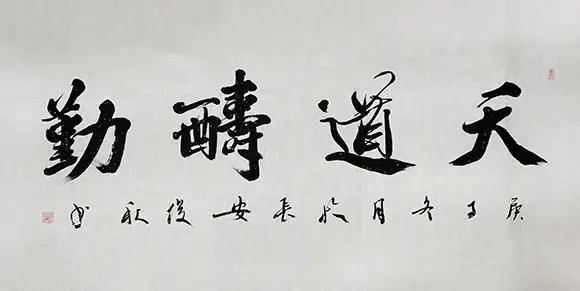 天道醻勤
庚子冬月於長安俊书